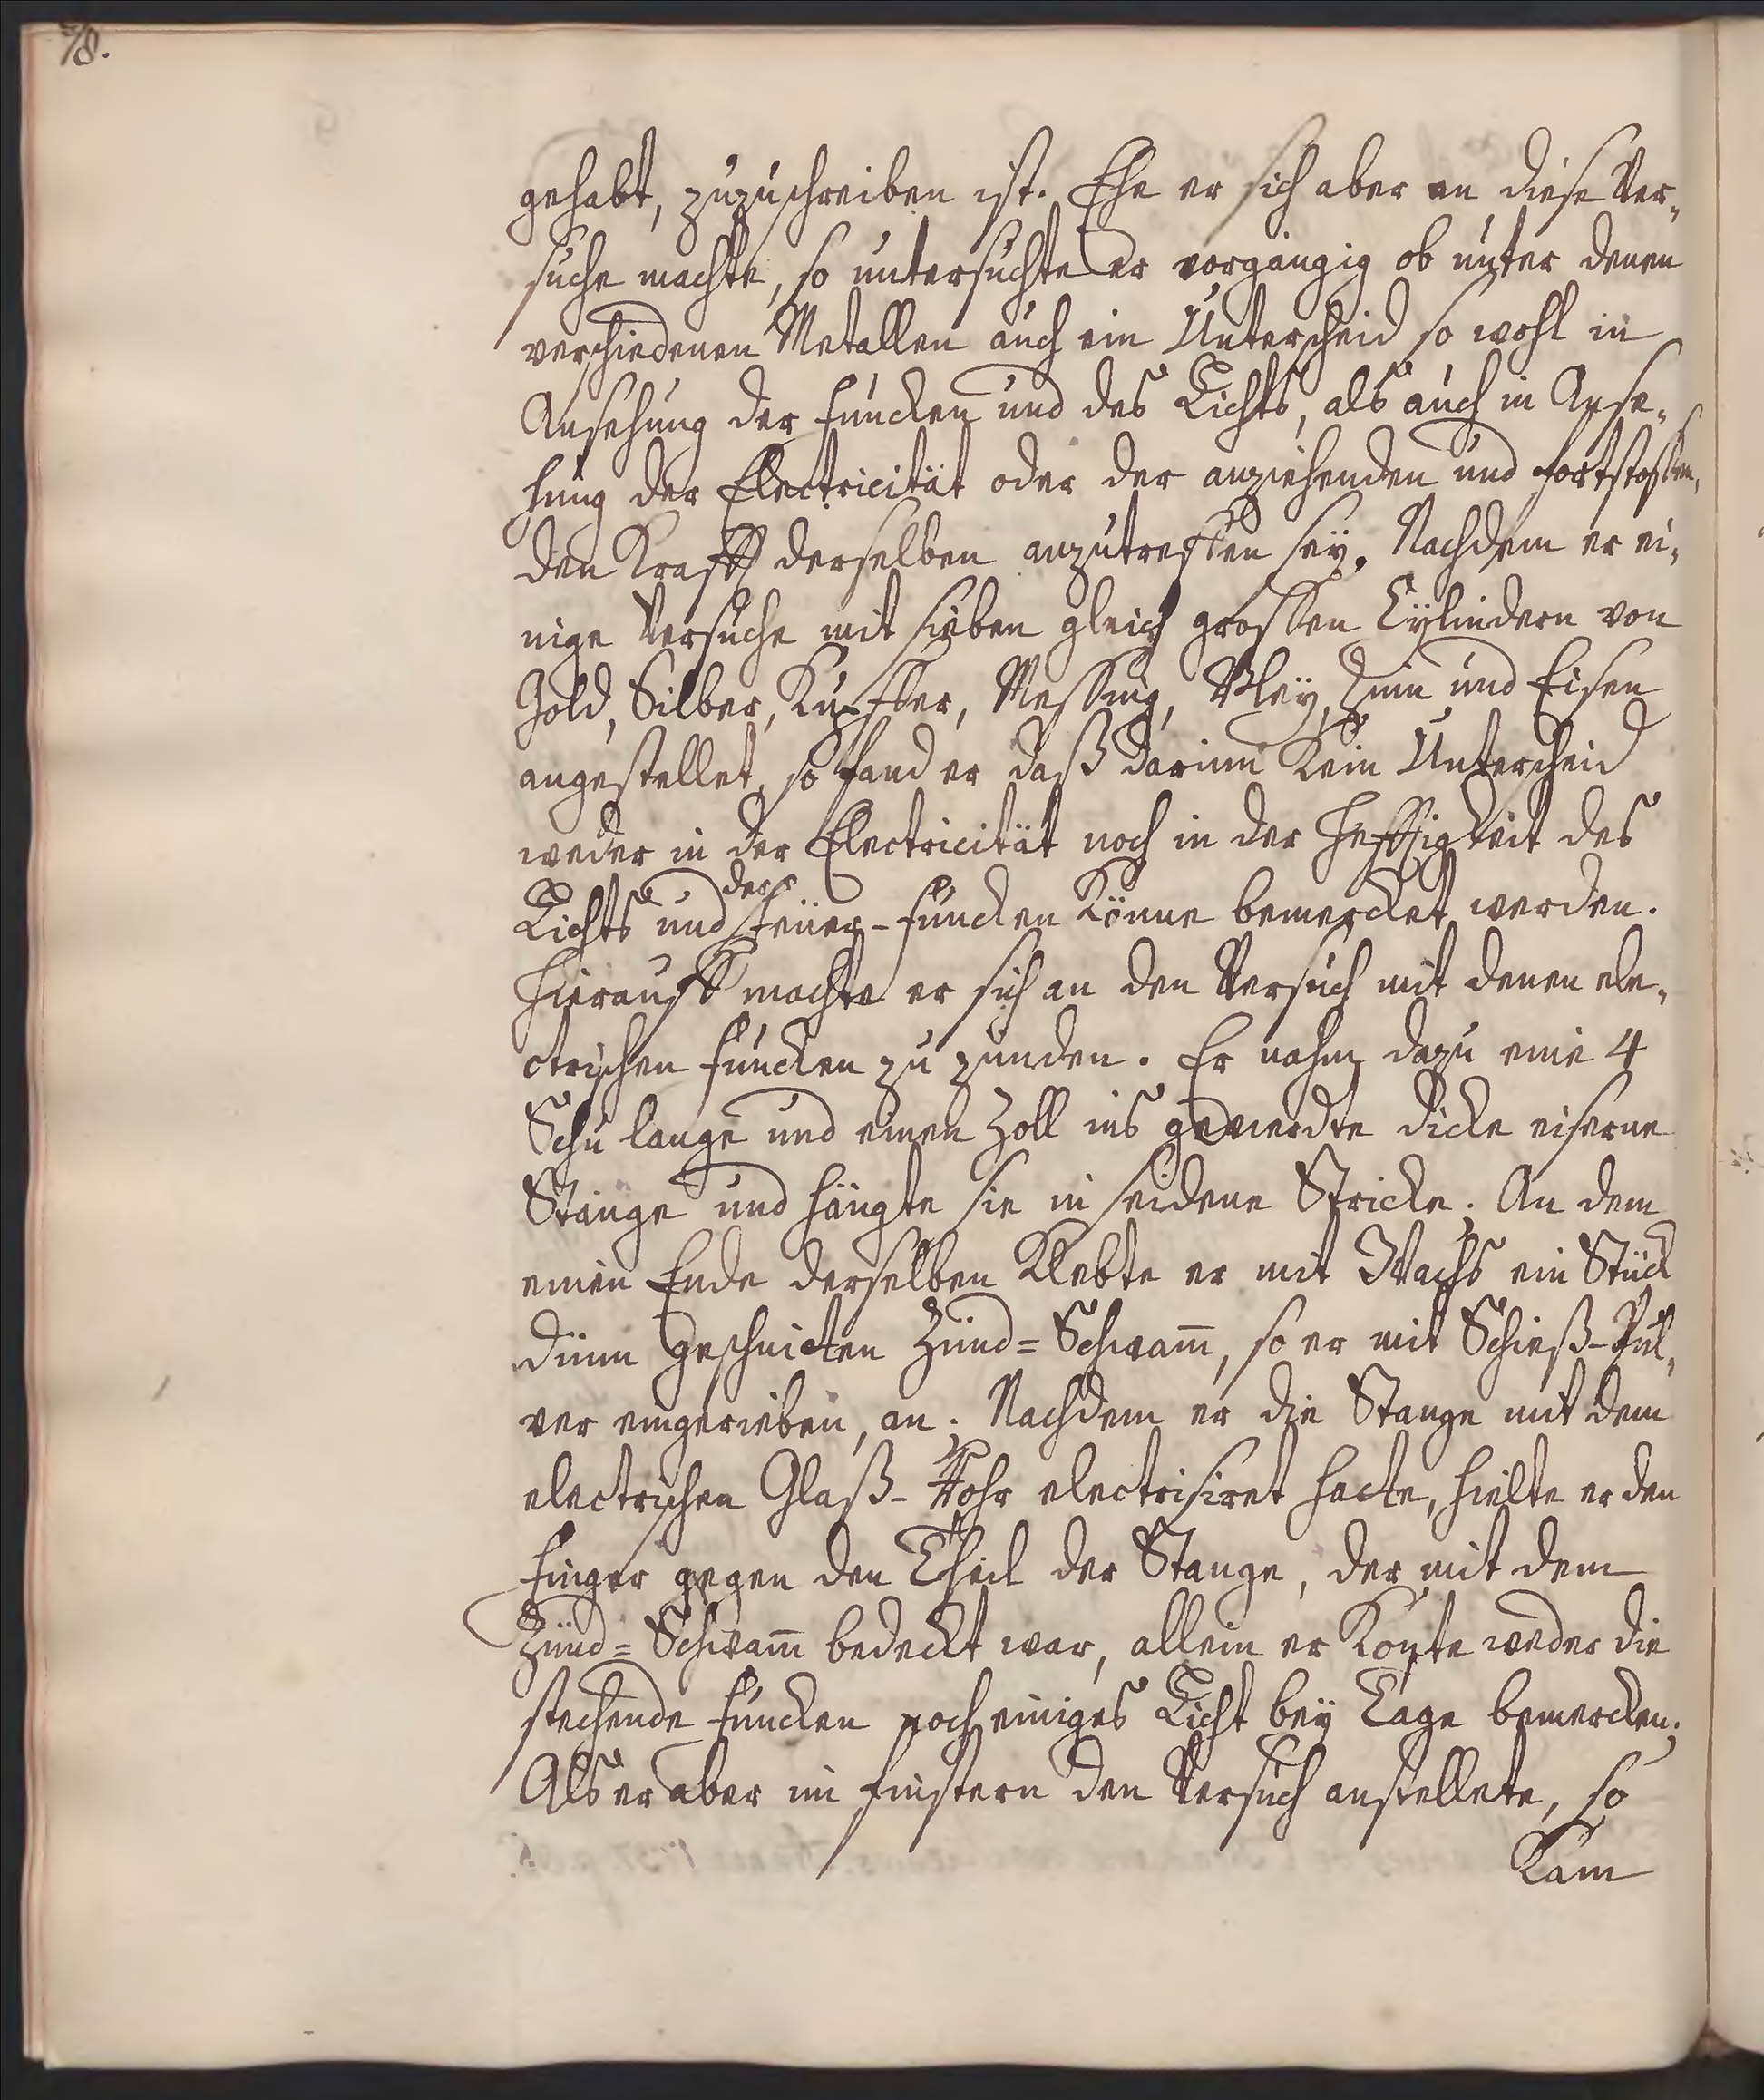 78.
gehabt, zuzuschreiben ist. Ehe er sich aber an diese Ver„
suche machte, so untersuchte er vorgängig ob unter denen
verschiedenen Metallen auch ein Unterscheid so wohl in
Ansehung der Funcken und des Lichts, als auch in Anse„
hung der Electricität oder der anziehenden und fortstossen„
den Krafft derselben anzutreffen seÿ. Nachdem er ei„
nige Versuche mit sieben gleich grossen Cÿlindern von
Gold, Silber, Kupffer, Messing, Bleÿ, Zinn und Eisen
angestellet, so fand er daß darinn kein Unterscheid
weder in der Electricität noch in der Hefftigkeit des
Lichts und der Feüer-Funcken könne bemercket werden.
Hierauff machte er sich an den Versuch mit denen ele„
ctrischen Funcken zu zünden. Er nahm dazu eine 4
Schu lange und einen Zoll ins gevierdte dicke eiserne
Stange und hängte sie in seidene Stricke. An dem
einen Ende derselben klebte er mit Wachs ein Stück
dünn geschnitten Zünd=Schwam̅, so er mit Schieß-Pul„
ver eingerieben, an. Nachdem er die Stange mit dem
electrischen Glaß-Rohr electrisiret hatte, hielte er den
Finger gegen den Theil der Stange, der mit dem
Zünd=Schwam̅ bedeckt war, allein er konte weder die
stechende Funcken noch einiges Licht beÿ Tage bemercken.
Als er aber im finstern den Versuch anstellete, so
kam